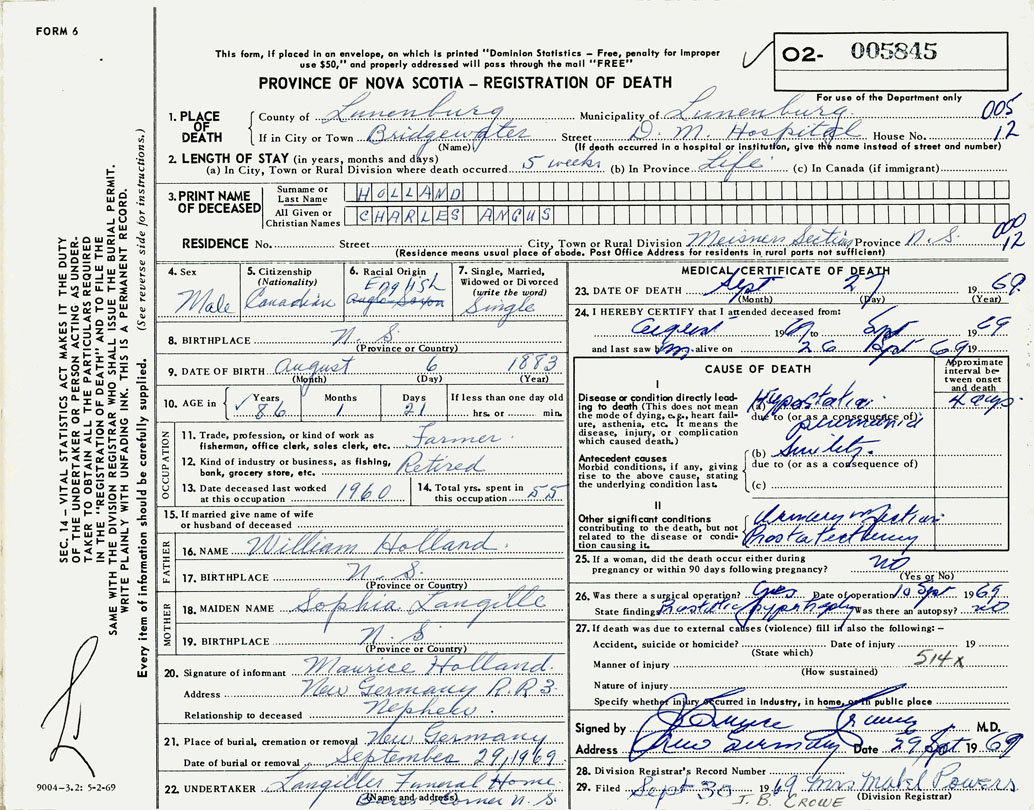 FORM 6
This form, if placed in an envelope, on which is printed "Dominion Statistics – Free, penalty for improper
use $50," and properly addressed will pass through the mail "FREE"
PROVINCE OF NOVA SCOTIA – REGISTRATION OF DEATH
02- 005845
For use of the Department only
005
12
1. PLACE OF DEATH
County of Lunenburg Municipality of Lunenburg
If in City or Town Bridgewater Street D. M. Hospital House No.
(Name) (If death occurred in a hospital or institution, give the name instead of street and number)
2. LENGTH OF STAY (in years, months and days)
(a) In City, Town or Rural Division where death occurred 5 weeks (b) In Province Life (c) In Canada (if immigrant)
3. PRINT NAME OF DECEASED
Surname or Last Name HOLLAND
All Given or Christian Names CHARLES ANGUS
000
12
RESIDENCE No. Street City, Town or Rural Division Meisners Section Province N.S.
(Residence means usual place of abode. Post Office Address for residents in rural parts not sufficient)
4. Sex
Male
5. Citizenship
(Nationality)
Canadian
6. Racial Origin
English
Anglo-Saxon
7. Single, Married,
Widowed or Divorced
(write the word)
Single
8. BIRTHPLACE N. S
(Province or Country)
9. DATE OF BIRTH August 6 1883
(Month) (Day) (Year)
10. AGE in Years Months Days If less than one day old
86 1 21 hrs. or min.
OCCUPATION
11. Trade, profession, or kind of work as
fisherman, office clerk, sales clerk, etc. Farmer
12. Kind of industry or business, as fishing,
bank, grocery store, etc. Retired
13. Date deceased last worked
at this occupation 1960
14. Total yrs. spent in
this occupation 55
15. If married give name of wife
or husband of deceased
FATHER
16. NAME William Holland.
17. BIRTHPLACE N. S.
(Province or Country)
MOTHER
18. MAIDEN NAME Sophia Langille
19. BIRTHPLACE N. S
(Province or Country)
20. Signature of informant Maurice Holland.
Address New Germany R.R 3.
Relationship to deceased Nephew.
21. Place of burial, cremation or removal New Germany
Date of burial or removal September 29, 1969.
22. UNDERTAKER Langilles Funeral Home
(Name and address) N. S.
MEDICAL CERTIFICATE OF DEATH
23. DATE OF DEATH Sept 27 1969
(Month) (Day) (Year)
24. I HEREBY CERTIFY that I attended deceased from:
August 19 to Sept 1969
and last saw him alive on 26 Sept 69 19
CAUSE OF DEATH
Approximate interval between onset and death
I
Disease or condition directly leading to death (This does not mean
the mode of dying, e.g., heart failure, asthenia, etc. It means the
disease, injury, or complication
which caused death.)
(a) Hypostatic 4 days
due to (or as a consequence of)
pneumonia
Antecedent causes
Morbid conditions, if any, giving
rise to the above cause, stating
the underlying condition last.
(b) Senility.
due to (or as a consequence of)
(c)
II
Other significant conditions
contributing to the death, but not
related to the disease or condition causing it.
Urinary infection
Prostatectomy
25. If a woman, did the death occur either during
pregnancy or within 90 days following pregnancy? NO
(Yes or No)
26. Was there a surgical operation? Yes Date of operation 10 Sept 1969
State findings Prostatic hypertrophy Was there an autopsy? no
27. If death was due to external causes (violence) fill in also the following: –
Accident, suicide or homicide? Date of injury 19
(State which)
514x
Manner of injury
(How sustained)
Nature of injury
Specify whether injury occurred in Industry, in home, or in public place
Signed by M.D.
Address New Germany Date 29 Sept 1969
28. Division Registrar's Record Number
29. Filed Sept 30 1969 Mrs Mabel Powers
(Division Registrar)
J. B. CROWE
SEC. 14 – VITAL STATISTICS ACT MAKES IT THE DUTY
OF THE UNDERTAKER OR PERSON ACTING AS UNDERTAKER TO OBTAIN ALL THE PARTICULARS REQUIRED
IN THE "REGISTRATION OF DEATH" AND TO FILE THE
SAME WITH THE DIVISION REGISTRAR WHO SHALL ISSUE THE BURIAL PERMIT.
WRITE PLAINLY WITH UNFADING INK. THIS IS A PERMANENT RECORD.
Every item of information should be carefully supplied. (See reverse side for instructions.)
9004-3.2: 5-2-69